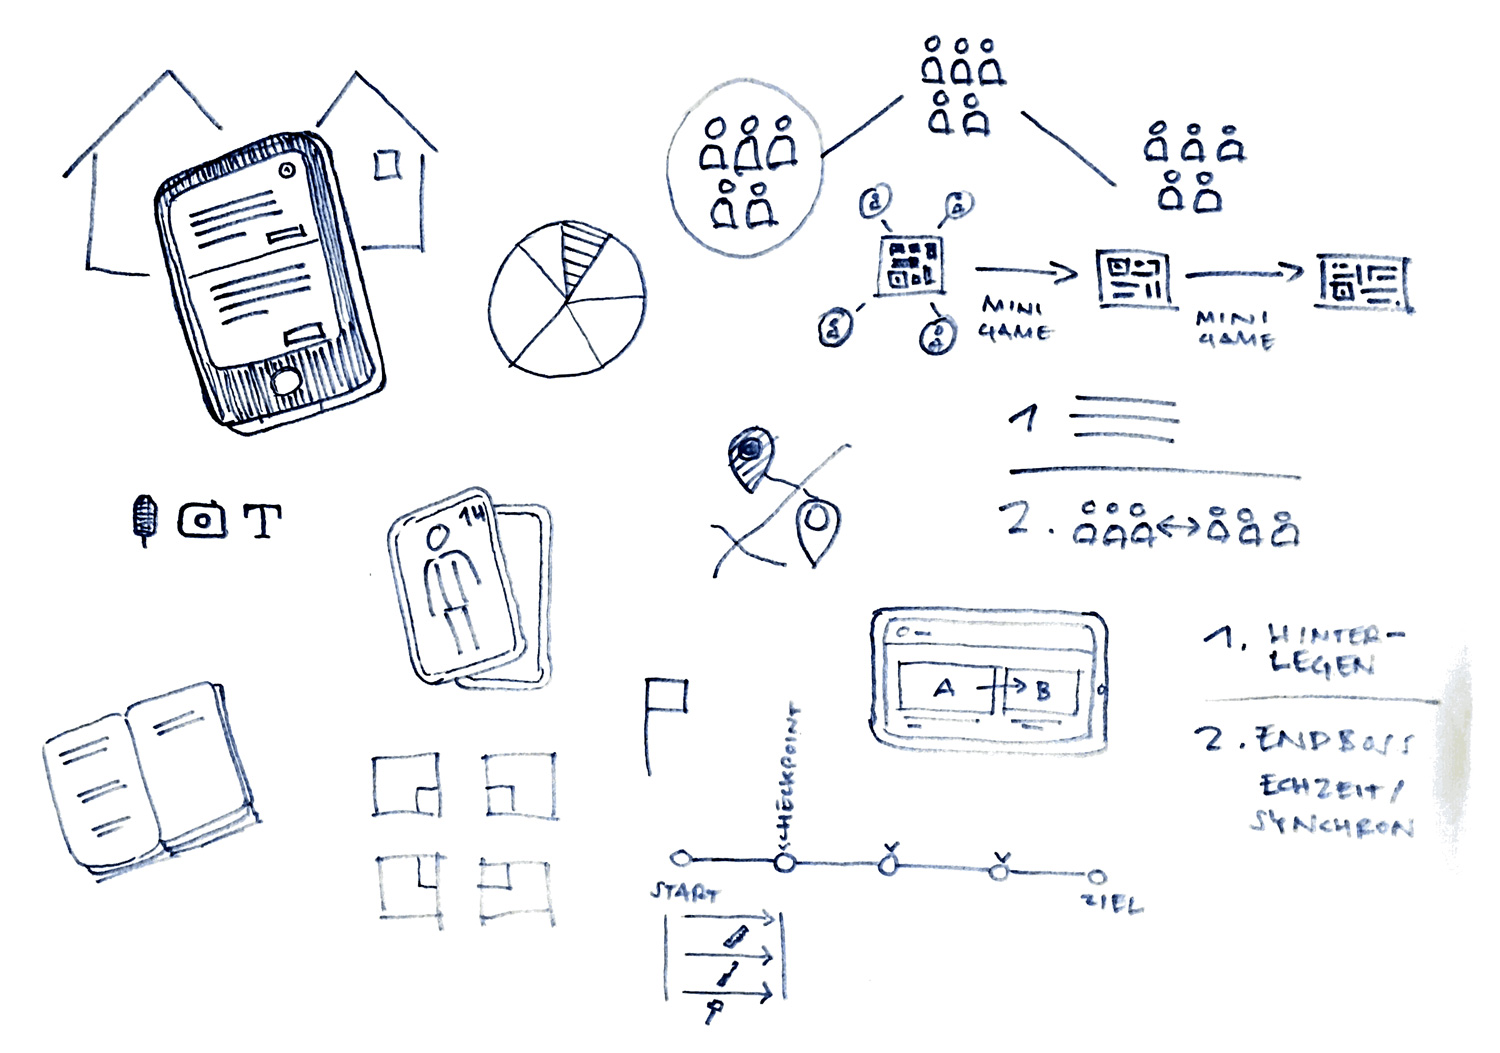 MINI
GAME
MINI
GAME
1
2.
T
14
A → B
1. HINTER-
LEGEN
2. ENDBOSS
ECHZEIT/
SYNCHRON
CHECKPOINT
START
ZIEL